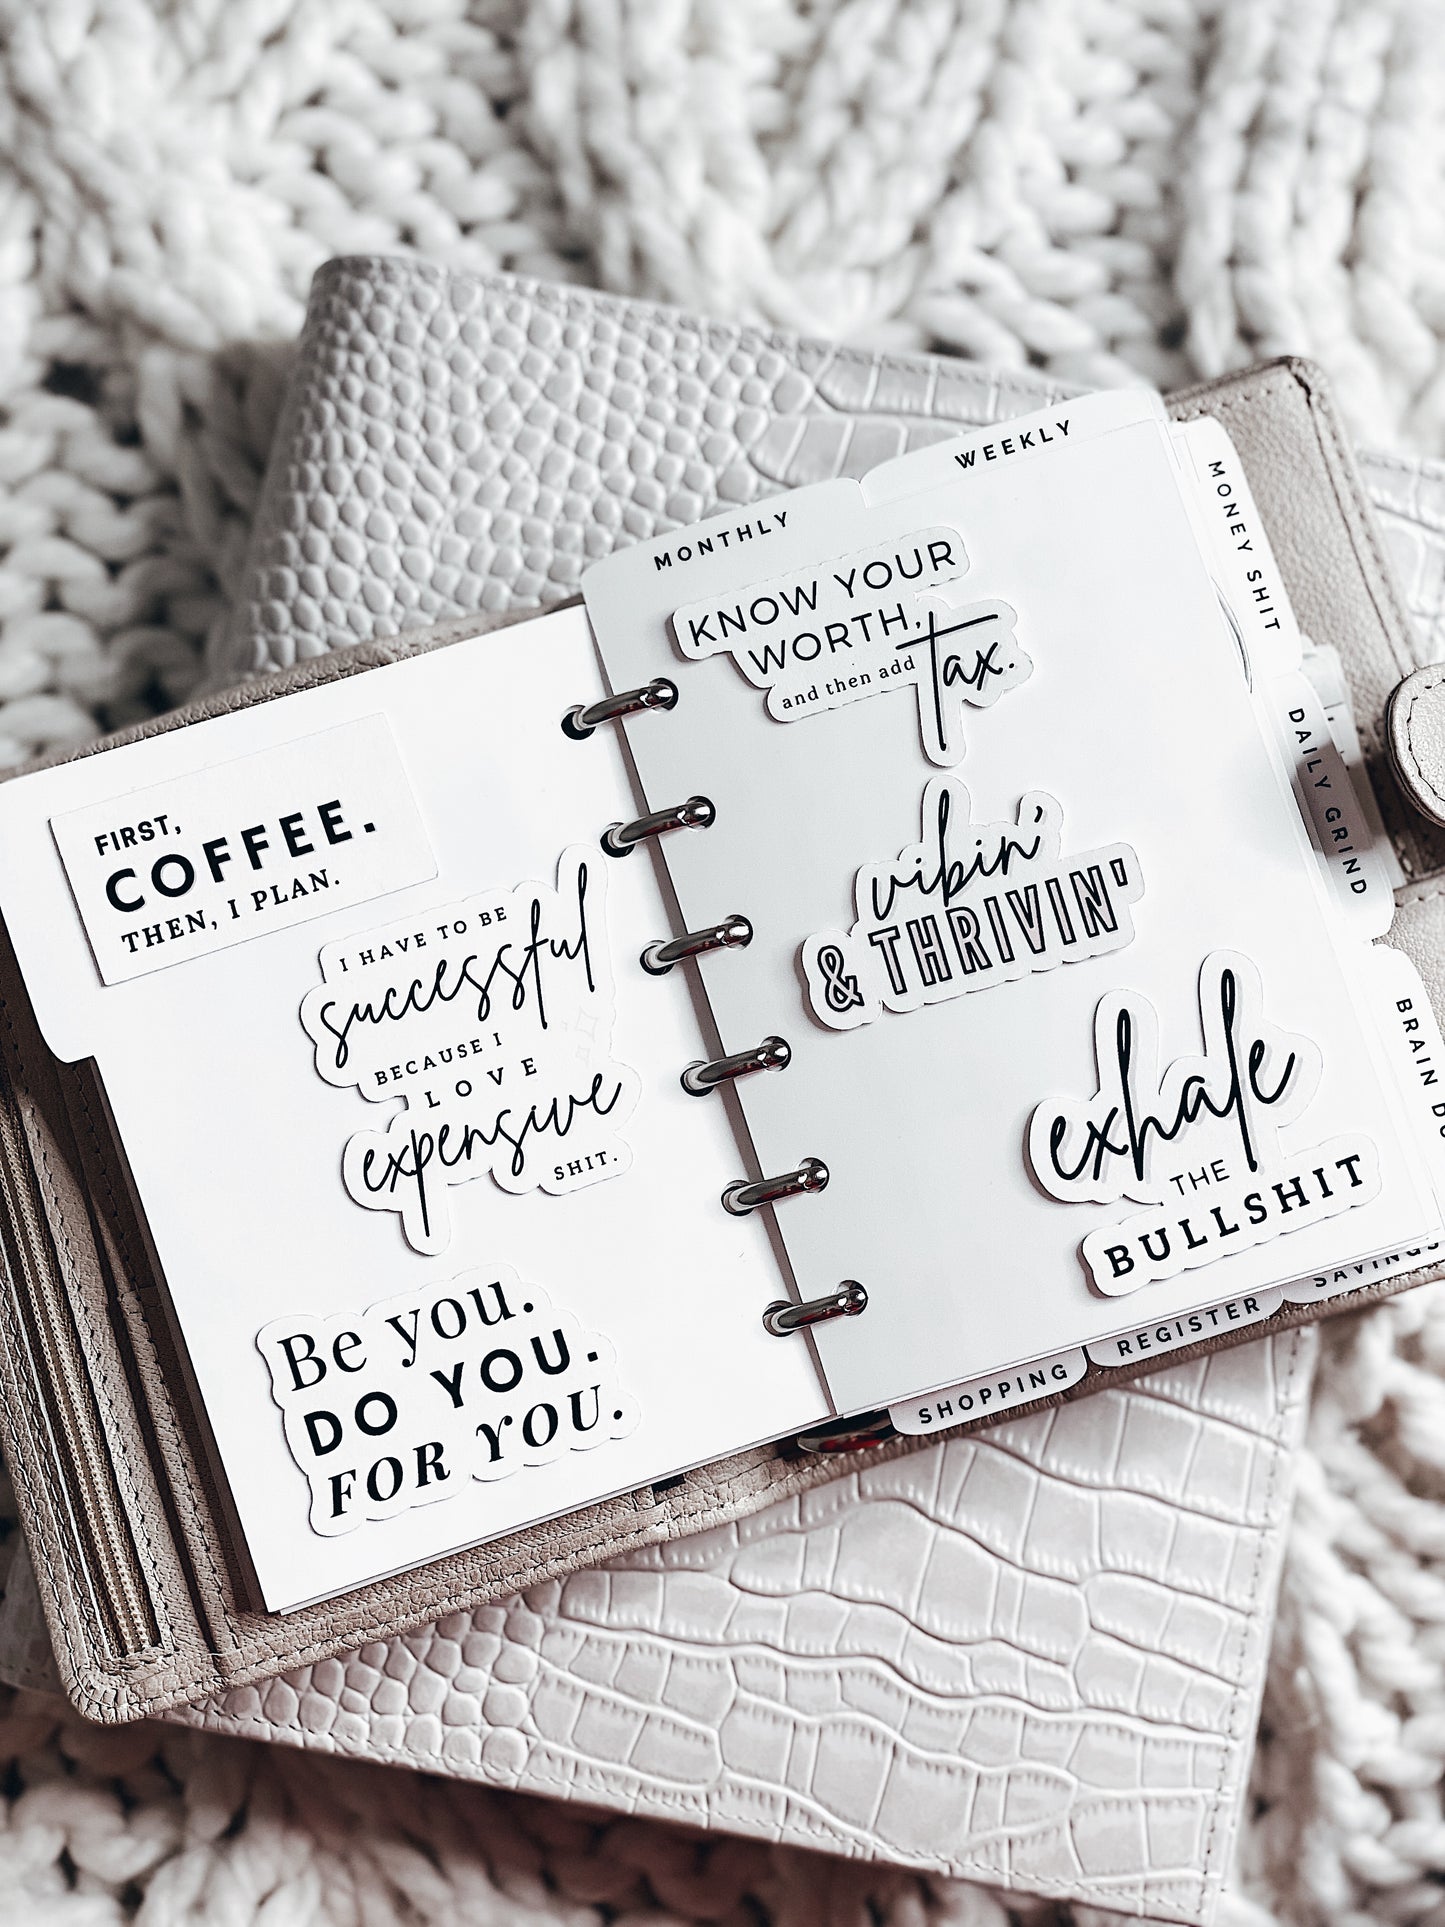 FIRST,
COFFEE.
THEN, I PLAN.
I HAVE TO BE
successful
BECAUSE I
LOVE
expensive
SHIT.
Be you.
DO YOU.
FOR YOU.
MONTHLY
WEEKLY
KNOW YOUR
WORTH,
and then add tax.
vibin'
& THRIVIN'
exhale
THE
BULLSHIT
MONEY SHIT
DAILY GRIND
BRAIN
SHOPPING
REGISTER
SAVINGS